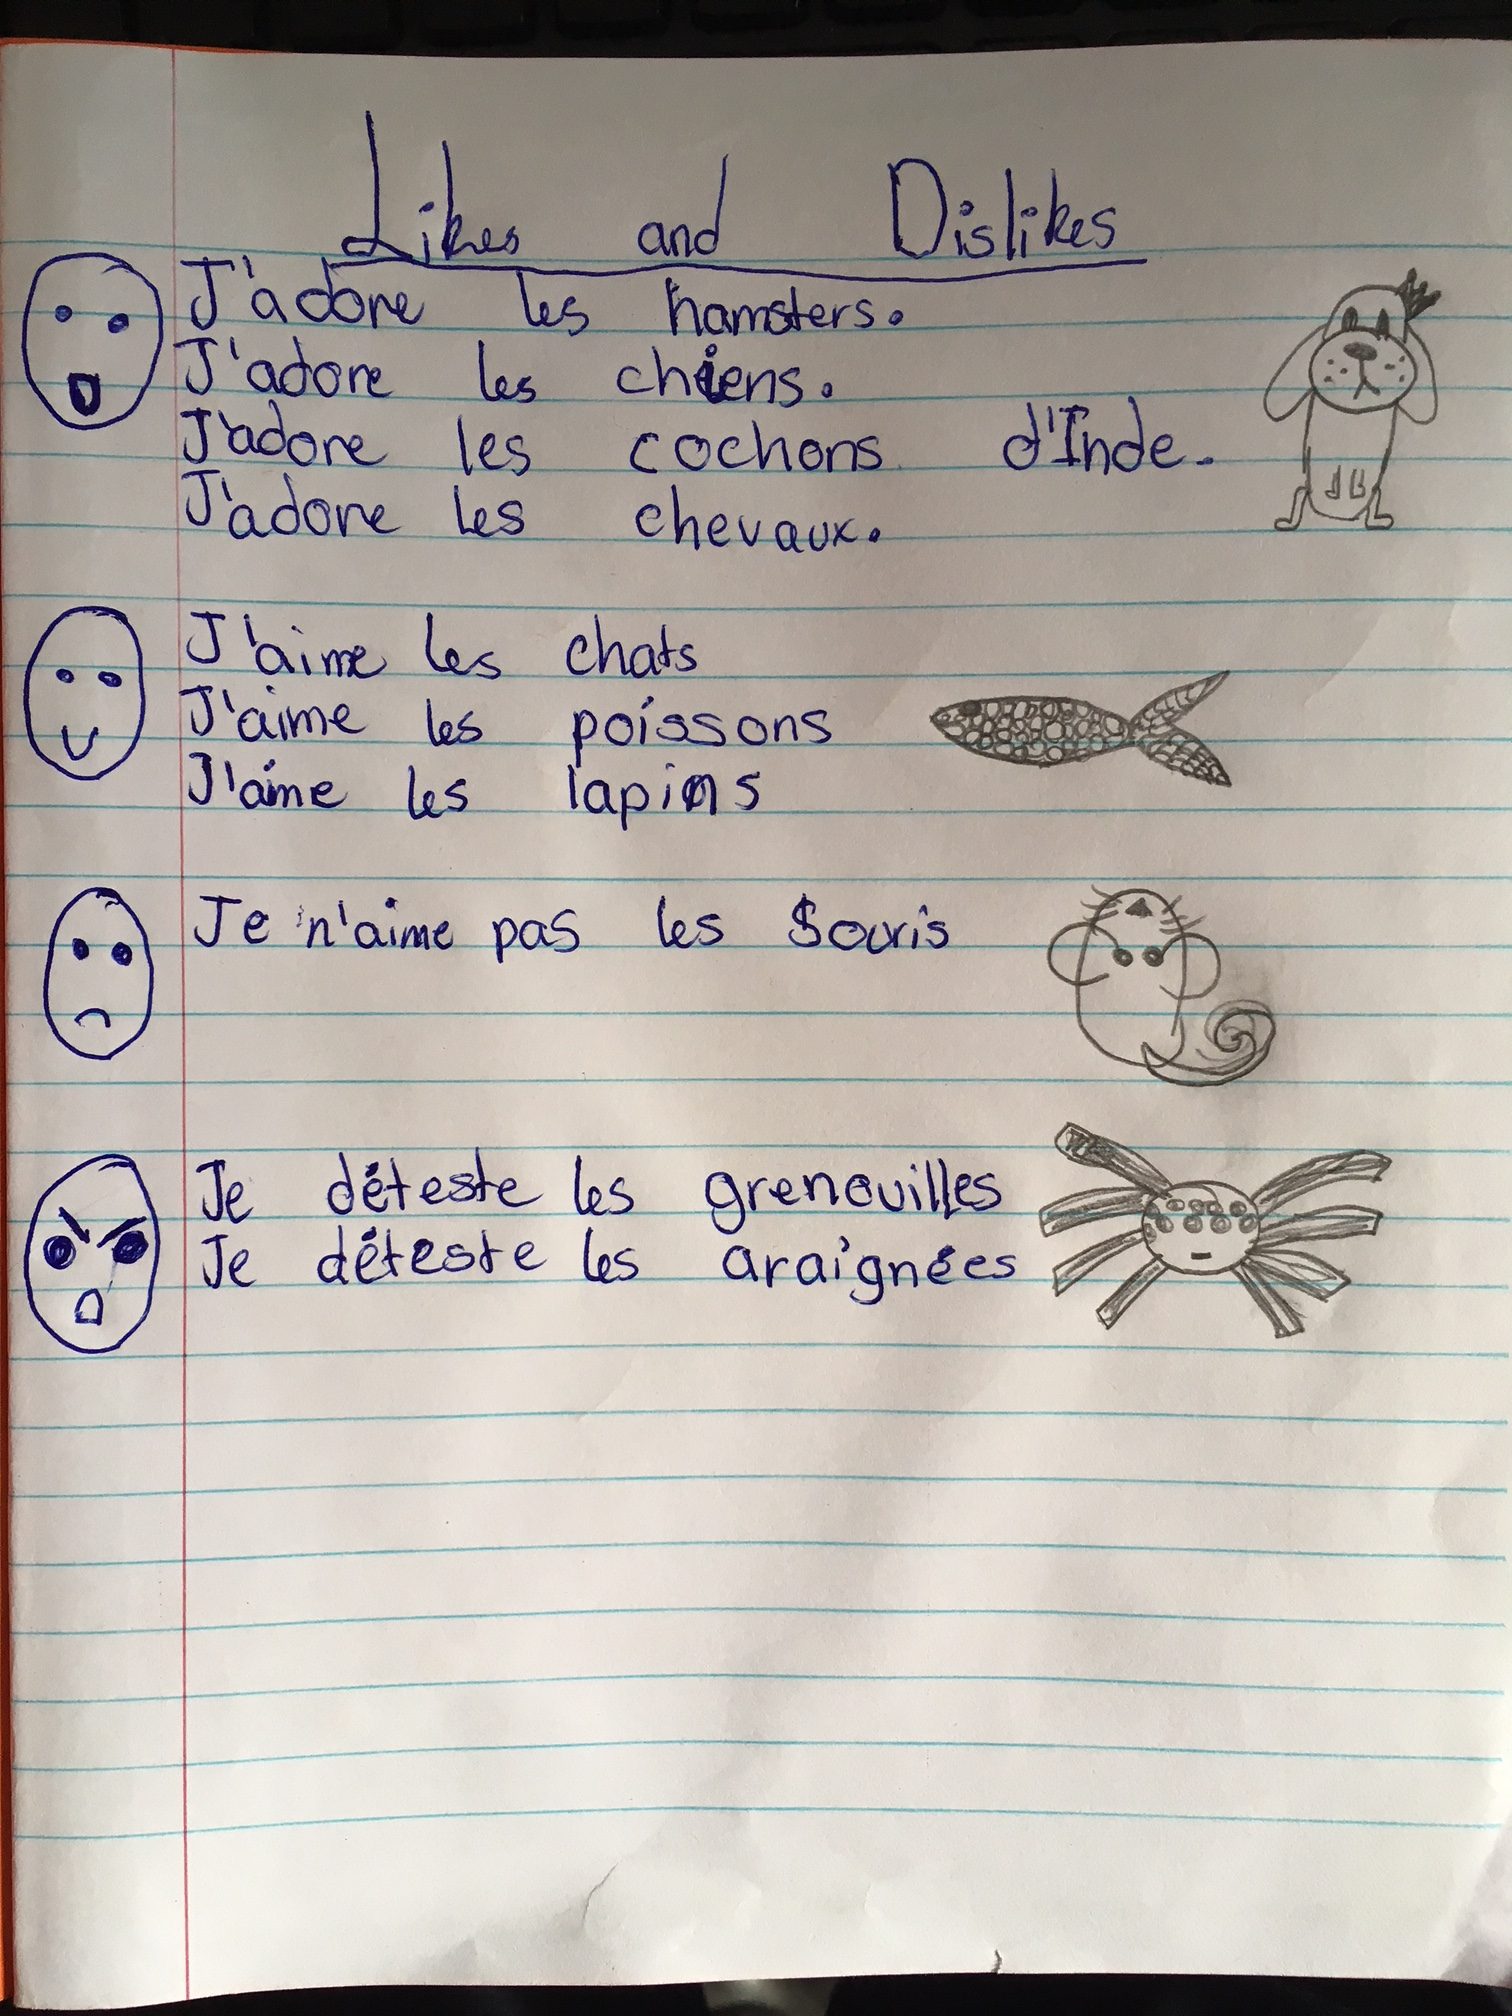 Likes and Dislikes
J'adore les hamsters.
J'adore les chiens.
J'adore les cochons d'Inde.
J'adore les chevaux.
J'aime les chats
J'aime les poissons
J'aime les lapins
Je n'aime pas les souris
Je déteste les grenouilles
Je déteste les araignées